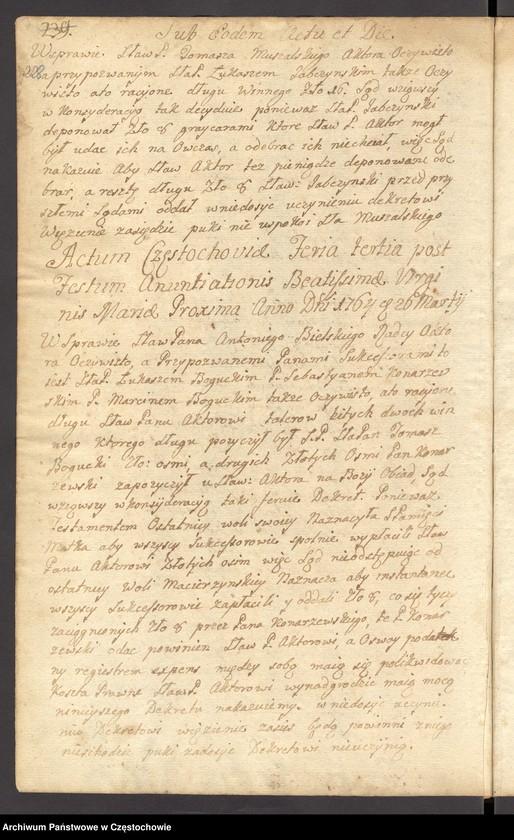 239. Sub Eodem Actu et Die.
W sprawie Sław P. Tomasza Muszalskiego Aktora Oczywisto
228 a przypozwanym Sła P. Łukaszem Jabczynskim także Oczy
wisto ato racione długu winnego Zło 16. Sąd wziąwszy
w Konsyderacyą tak decyduie ponieważ Sła P. Jabczynski
deponował Zło 8 graycarami ktore Sław P. Aktor mogł
był udac ich na Owczas, a odebrac ich niechciał, więc Sąd
nakazuie Aby Sław Aktor też pieniądze deponowane ode
brał, a resztę długu Zło 8 Sław: Jabczynski przed przy
szłemi Sądami oddał wniedosyc uczynieniu dekretowi
Więzienie zasiędzie puki nie uspokoi Sła Muszalskiego
Actum Częstochoviæ Feria tertia post
Festum Anuntiationis Beatissimæ Virgi
nis Mariæ Proxima Anno Dni 1764 d 26 Martij
W Sprawie Sław Pana Antoniego Bielskiego Radcy Akto
ra Oczywisto, a Przypozwanemi Panami Sukcessorami to
iest Sła P. Łukaszem Boguckim P. Sebastyanem Konarzew
skim P. Marcinem Boguckim także Oczywisto, ato racione
długu Sław Panu Aktorowi talerow bitych dwoch win
nego ktorego długu pozyczył był S.P. Sła Pan Tomasz
Bogucki Zło: osmi, a drugich Złotych Osmi Pan Konar
zewski zapozyczył u Sław: Aktora na Bozy Obiad, Sąd
wziąwszy w konsyderacyą taki feruie Dekret. Ponieważ
Testamentem Ostatniey woli swoiey Naznaczyła S Pamięci
Matka aby wszyscy Sukcessorowie społnie wypłacili Sław
Panu Aktorowi Złotych osim więc Sąd nieodstępuiąc od
ostatniey Woli Macierzynskiey Naznacza aby instantanee
wszyscy Sukcessorowie zapłacili y oddali Zło 8, co się tyczy
zaciągnionych Zło 8 przez Pana Konarzewskiego, te P. Konar
zewski odac powinien Sław P. Aktorowi a Oswoy podatek
ny regestrem expens między sobą maią się polikwidowac
Koszta Prawne Sław P. Aktorowi wynadgrodzic maią mocą
ninieyszego Dekretu nakazuiemy. w niedosyc uczynie
niu Dekretowi więzienie zasiesc będą powinni z niego
nieschodzic puki zadosyc Dekretowi nieuczynią.
Archiwum Państwowe w Częstochowie